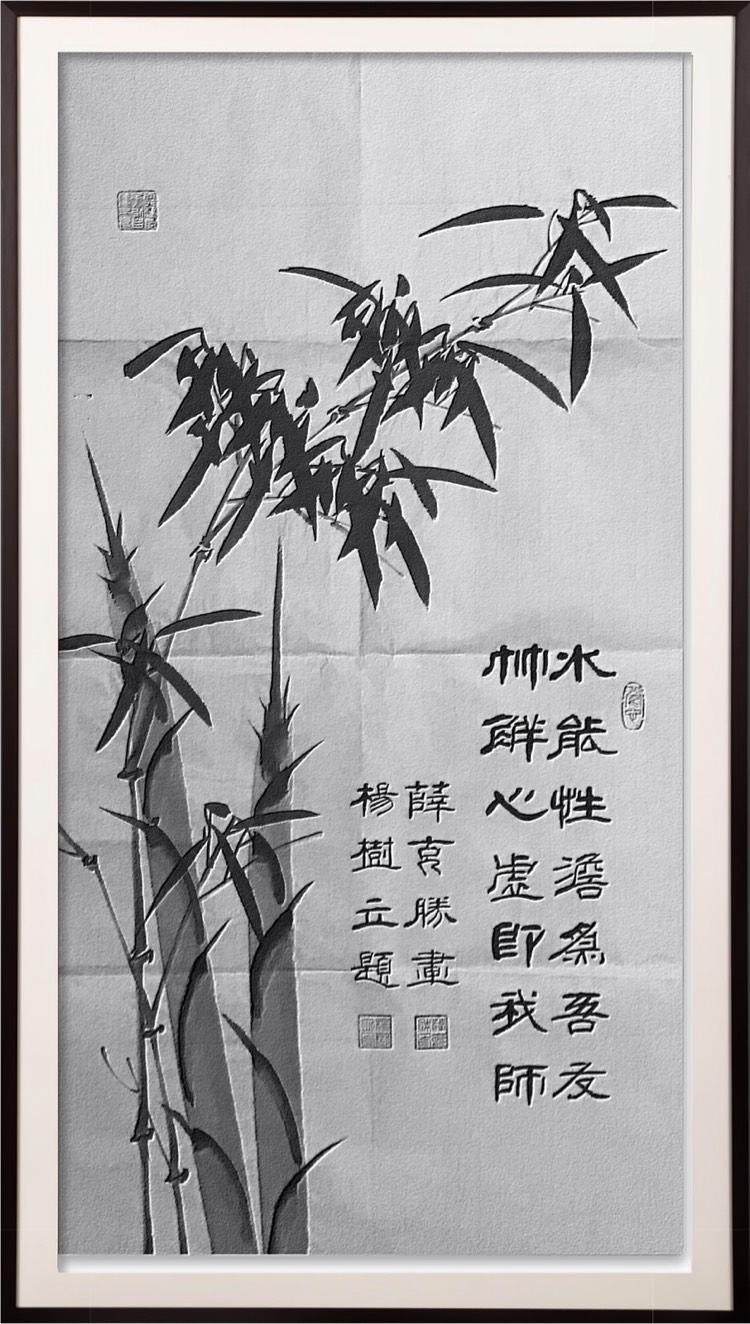 水能性澹為吾友
竹解心虛即我師
薛勝畫
楊樹立題